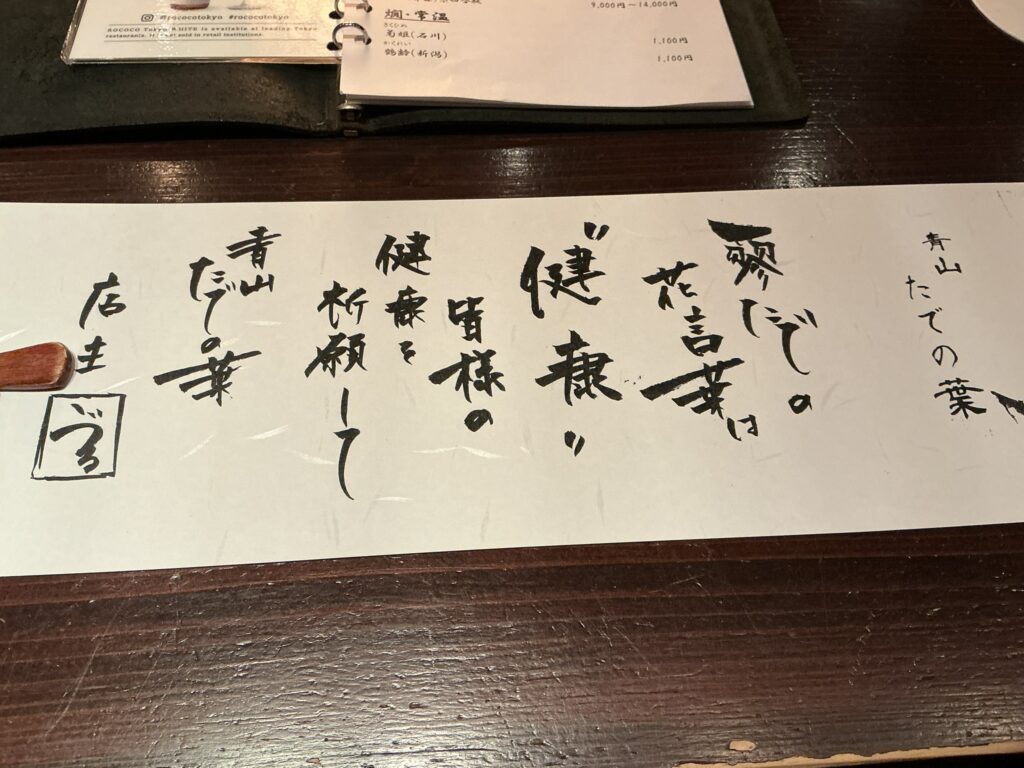 @rococotokyo #rococotokyo
ROCOCO Tokyo WHITE is available at leading Tokyo
restaurants. sold in retail institutions.
9,000円～14,000円
燗・常温
きくひめ
菊姫(石川) 1,100円
かくれい
鶴齢(新潟) 1,100円
青山
たでの葉
蓼たでの
花言葉は
"健康"
皆様の
健康を
祈願して
青山
たでの葉
店主